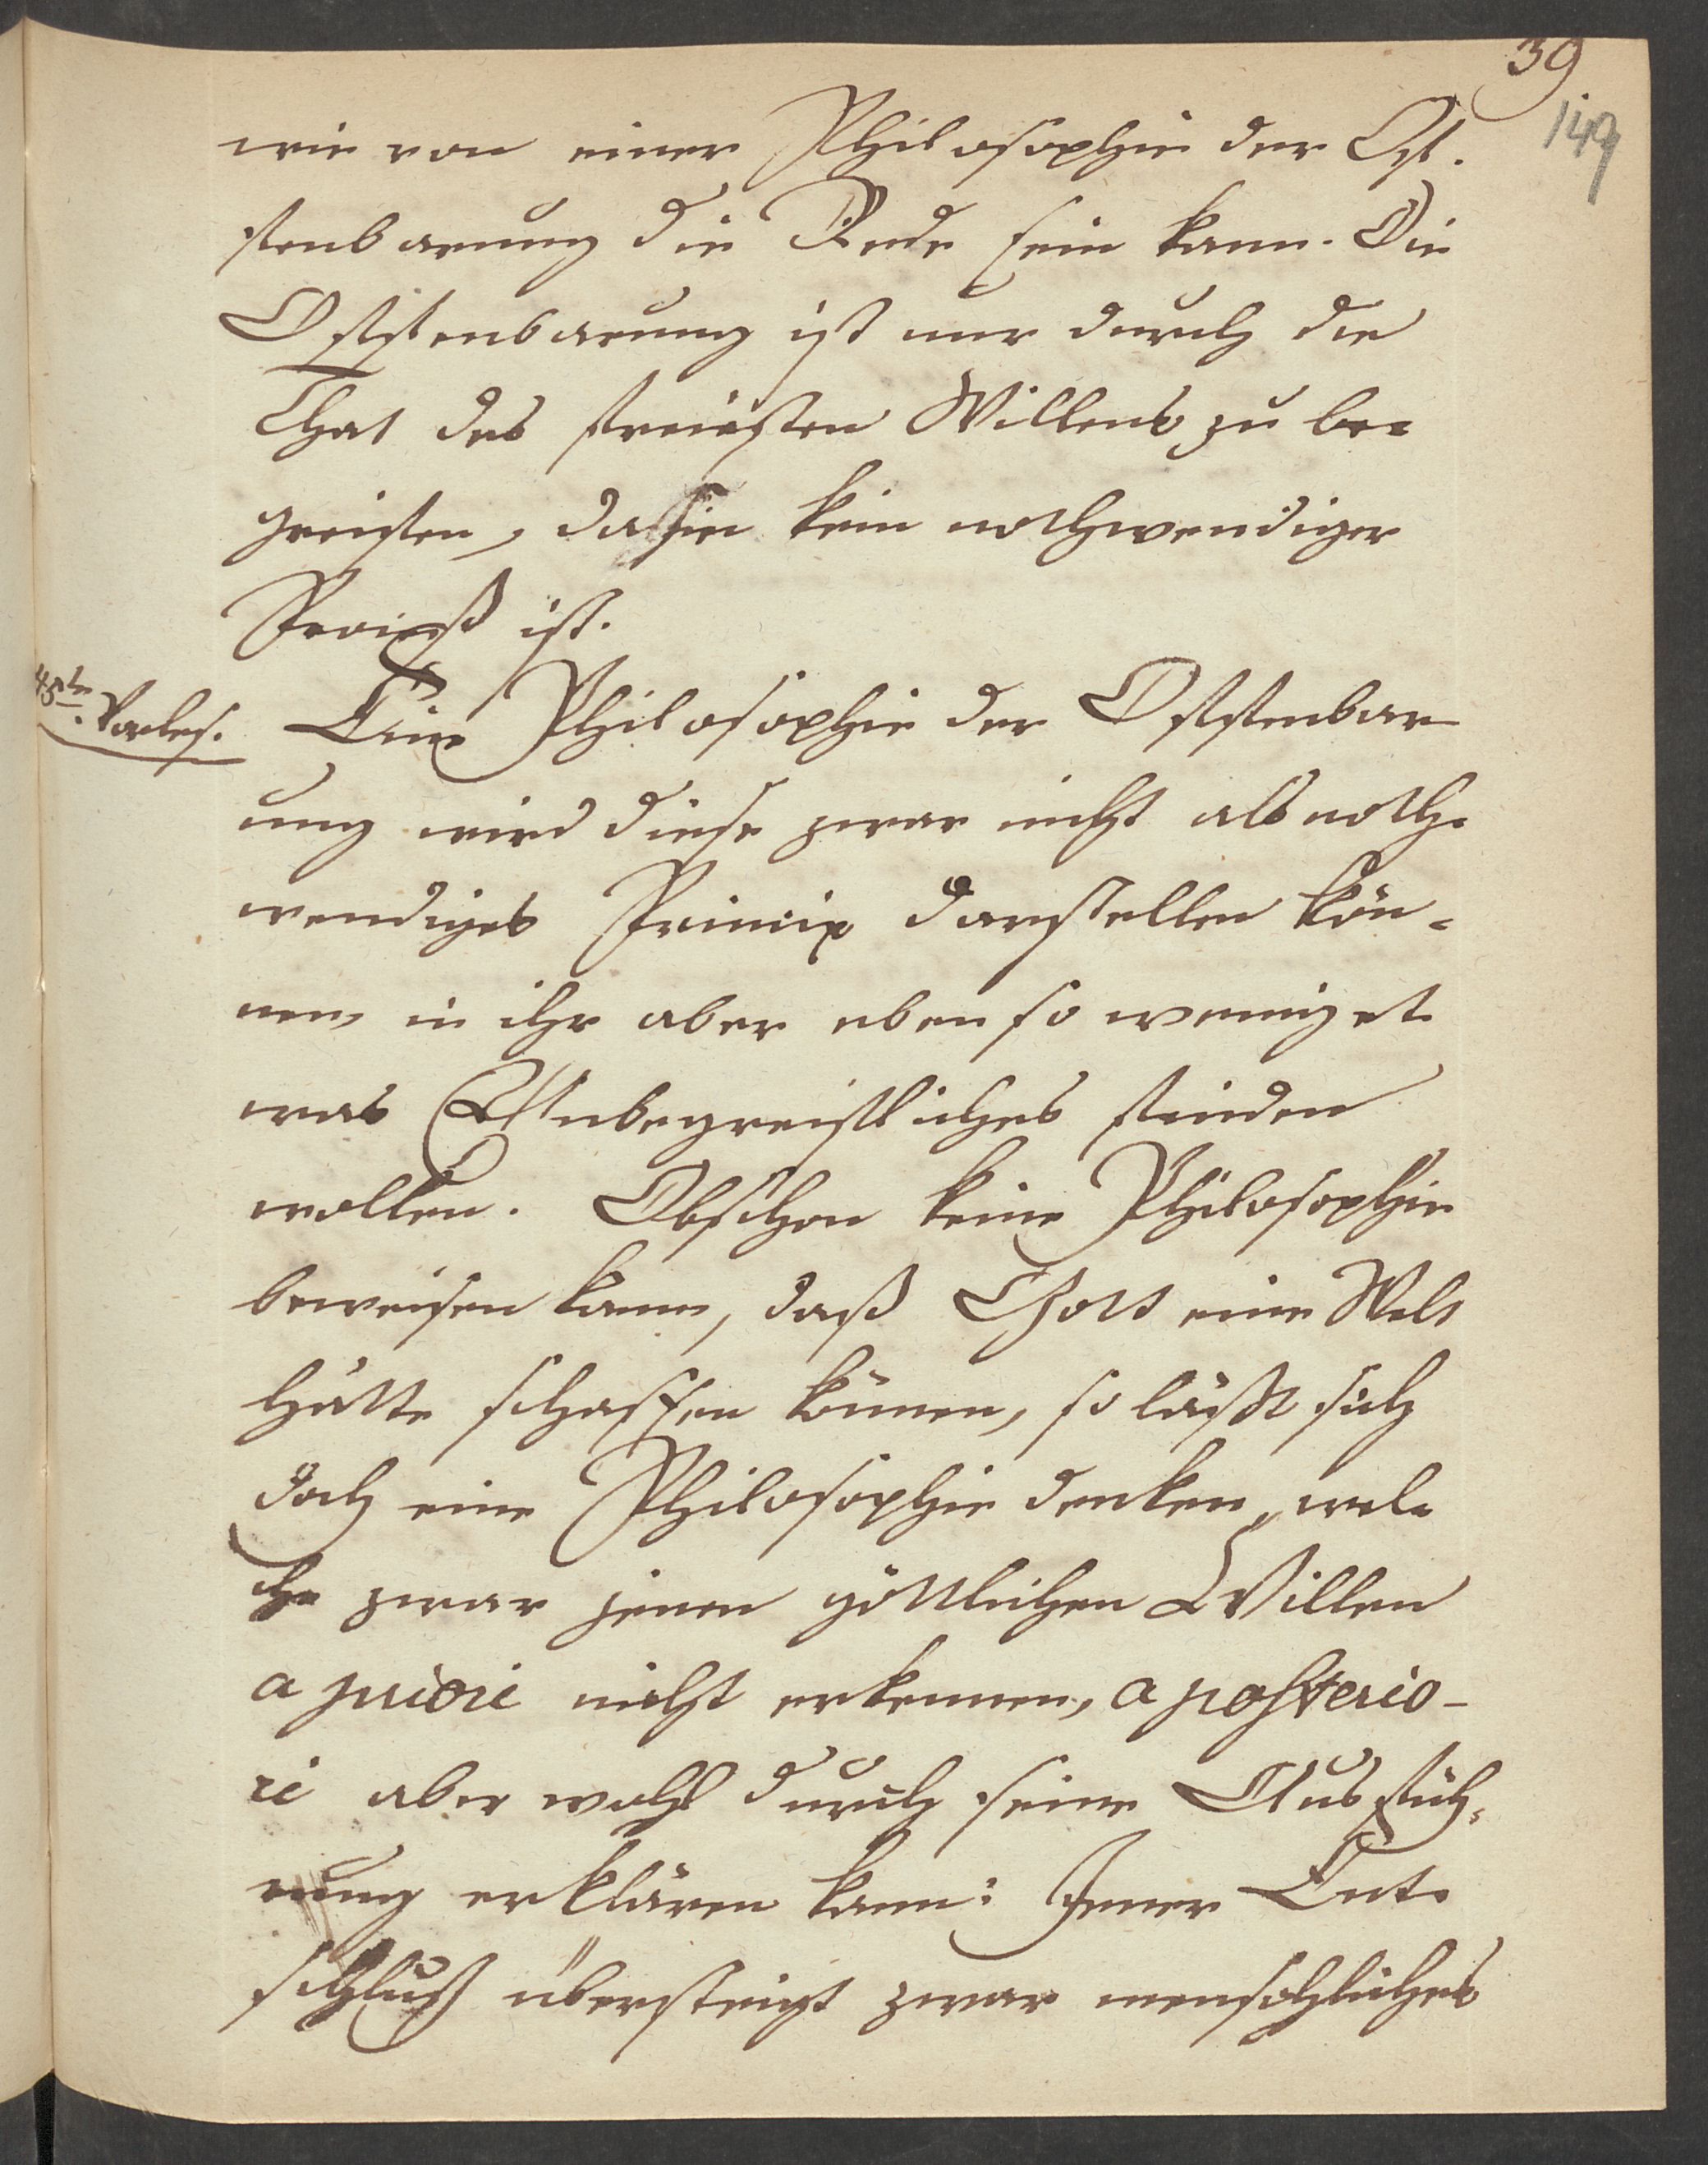 39
149
wie von einer Philosophie der Of-
fenbarung die Rede sein kann. Die
Offenbarung ist nur durch die
That des freiesten Willens zu be-
greifen, da sie kein nothwendiger
Proceß ist.
45te Vorles.
Eine Philosophie der Offenbar
ung wird diese zwar nicht als noth-
wendiges Princip darstellen kön-
nen, in ihr aber eben so wenig et-
was Unbegreifliches finden
wollen. Obschon keine Philosophie
beweisen kann, daß Gott eine Welt
hätte schaffen können, so läßt sich
doch eine Philosophie denken, wel-
che zwar jenen göttlichen Willen
a priori nicht erkennen, a posterio-
ri aber wohl durch seine Ausfüh-
rung erklären kann: Jener Ent-
schluß übersteigt zwar menschliches